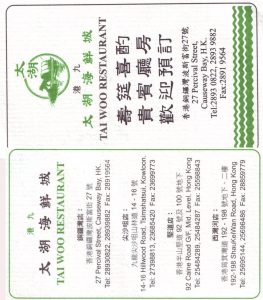 太湖
港九
太湖海鮮城
TAI WOO RESTAURANT
壽筵喜酌
貴賓廳房
歡迎預訂
香港銅鑼灣波斯富街27號
27 Percival Street,
Causeway Bay, H.K.
Tel:2893 0822, 2893 9882
Fax:2891 9564
港九
太湖海鮮城
TAI WOO RESTAURANT
銅鑼灣店:
香港銅鑼灣波斯富街 27 號
27 Percival Street, Causeway Bay, HK.
Tel: 28930822, 28939882 Fax: 28919564
尖沙咀店:
九龍尖沙咀山林道 14 - 16 號
14-16 Hillwood Road, Tsimshatsui, Kowloon.
Tel: 27398813, 23685420 Fax: 23699773
堅道店:
香港半山堅道 92 號及 100 號地下
92 Caine Road G/F, Mid. Level, Hong Kong
Tel: 25484289, 25484287 Fax: 25598843
西灣河店:
192-198 ShauKeiWan Road, Hong Kong
Tel: 25695144, 25696486 Fax: 28859779